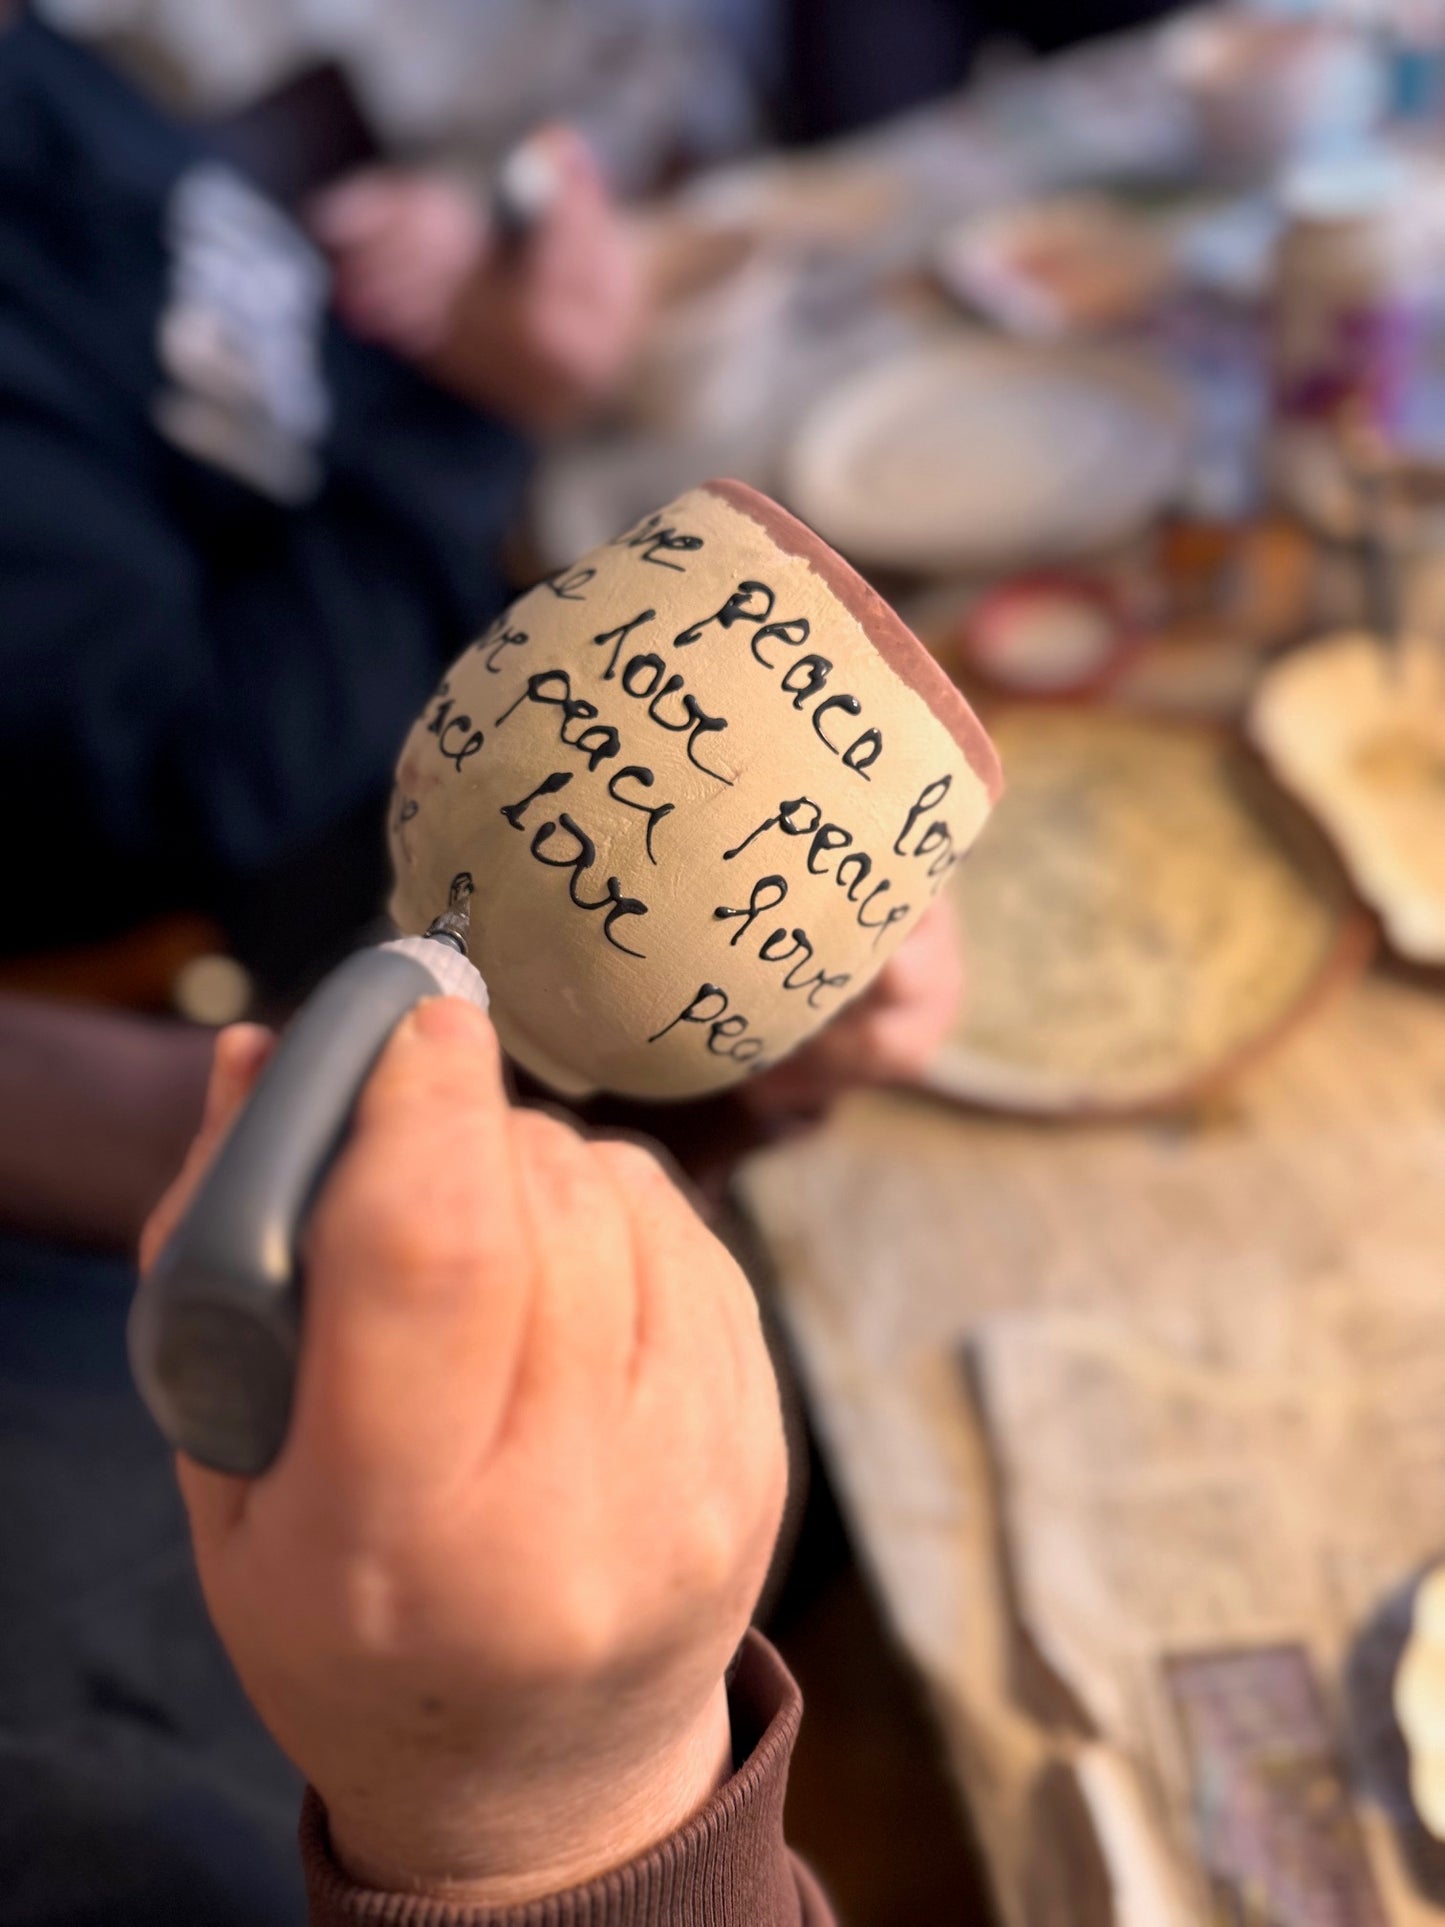 ove peace lov
e love peace
ve peace love
ace love pea